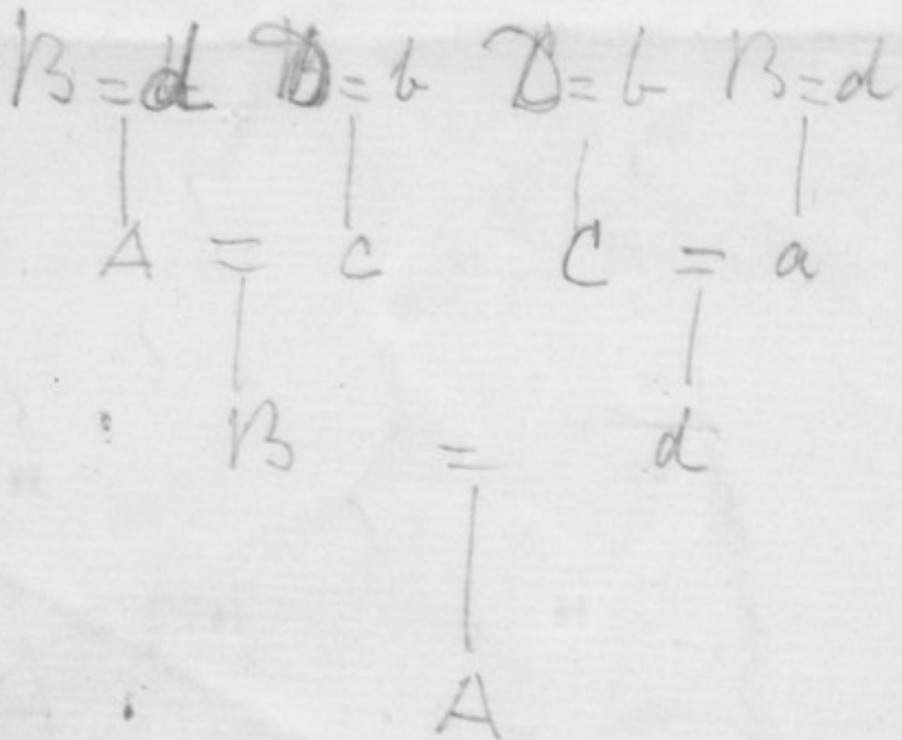 B = d D = b D = b B = d
A = c C = a
B = d
A